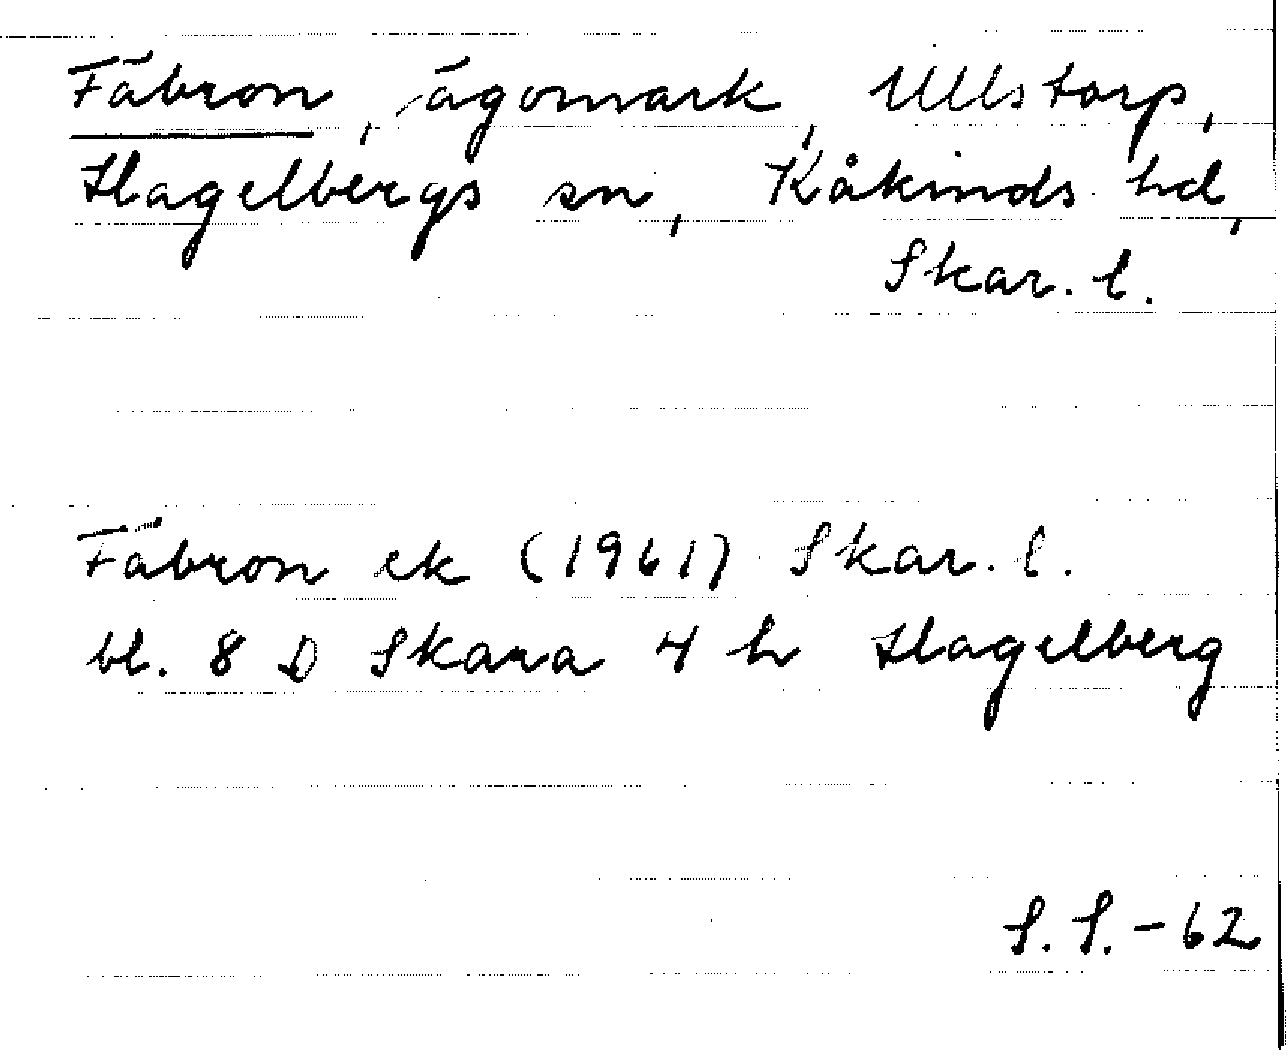 Fäbron, ägomark, Ullstorp,
Hagelbergs sn, Kåkinds hd,
Skar. l.
Fäbron ek (1961) Skar. l.
bl. 8 D Skara 4 h Hagelberg
S. S. - 62